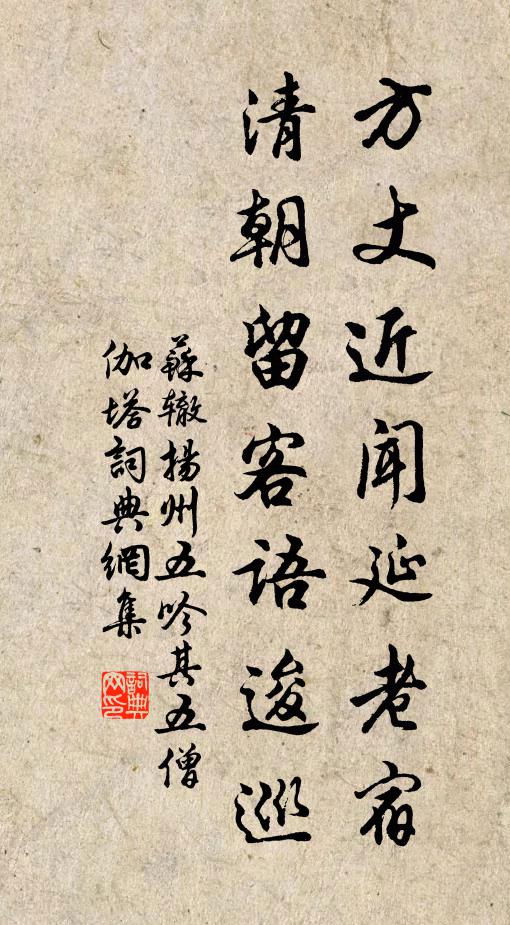 方丈近闻延老宿
清朝留客语逡巡
蘇辙揚州五吟其五僧
伽塔詞典網集
詞典网印